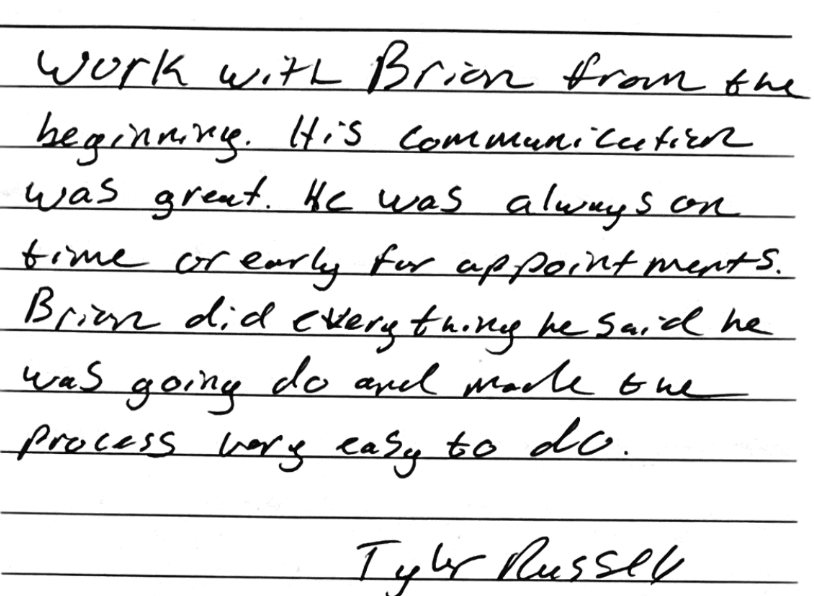 work with Brian from the
beginning. His communication
was great. He was always on
time or early for appointments.
Brian did everything he said he
was going do and made the
process very easy to do.
Tyler Russell